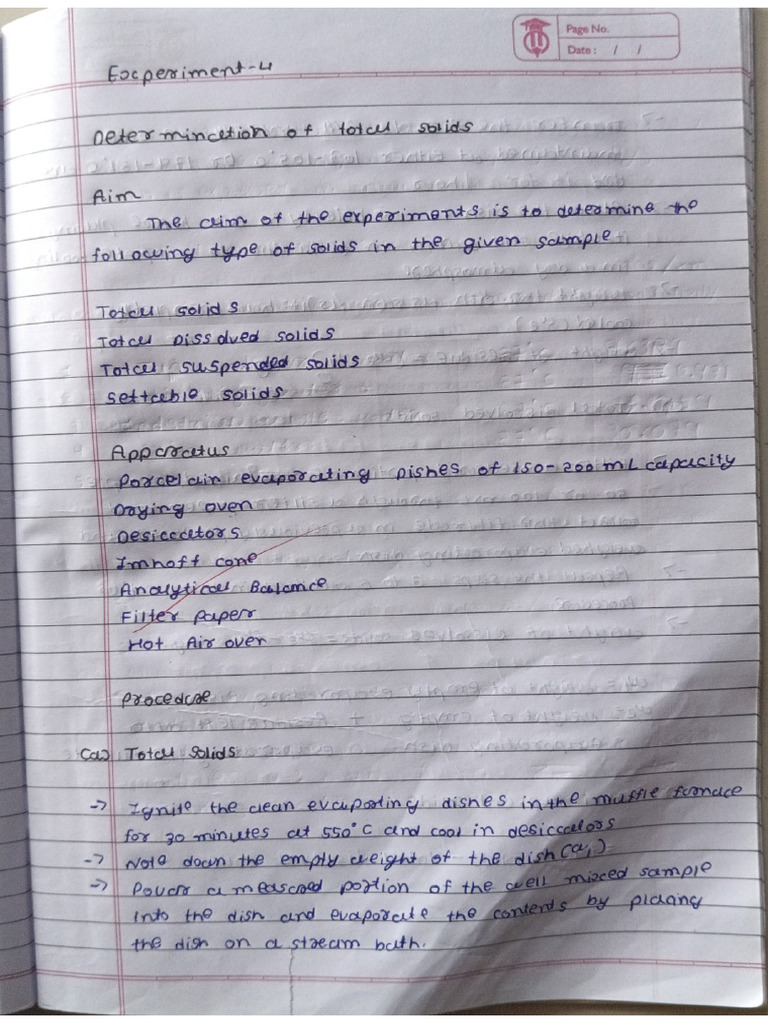 Page No.
Date: / /
Experiment-4
Determination of total solids
Aim
The aim of the experiments is to determine the
following type of solids in the given sample
Total solids
Total Dissolved solids
Total suspended solids
Settable solids
Apparatus
Porcelain evaporating Dishes of 150-200 mL capacity
Drying oven
Desiccators
Imhoff cone
Analytical Balance
Filter paper
Hot Air oven
Procedure
(a) Total solids
-> Ignite the clean evaporting dishes in the muffle furnace
for 30 minutes at 550°C and cool in desiccators
-> Note down the empty weight of the dish (a₁)
-> Pour a measured portion of the well mixed sample
into the dish and evaporate the contents by placing
the dish on a stream bath.